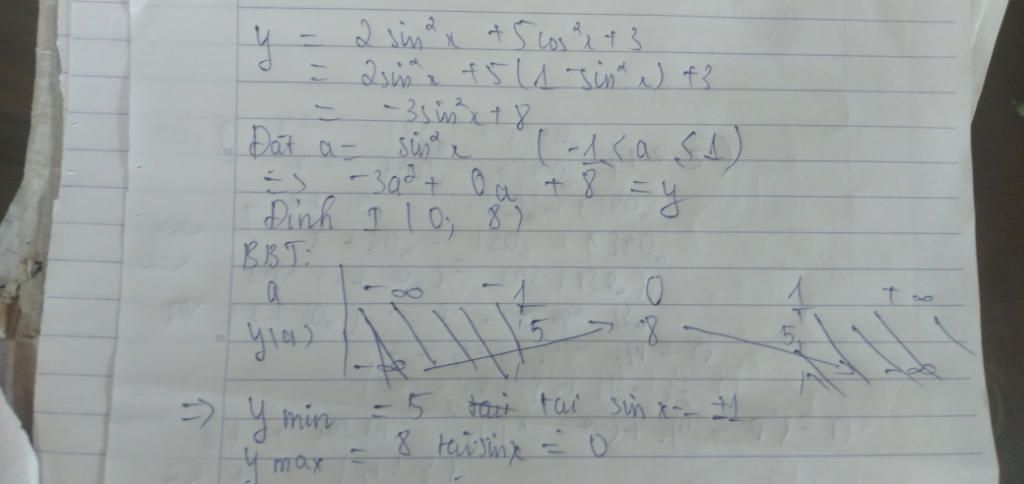 y = 2 sin²x + 5 cos²x + 3
= 2sin²x + 5(1 - sin²x) + 3
= -3sin²x + 8
Đặt a = sin²x (-1 ≤ a ≤ 1)
=> -3a² + 0a + 8 = y
Đỉnh I (0; 8)
BBT:
a -∞ -1 0 1 +∞
y(a) -∞ 5 8 5 -∞
=> y min = 5 tại sin x = ±1
y max = 8 tại sin x = 0